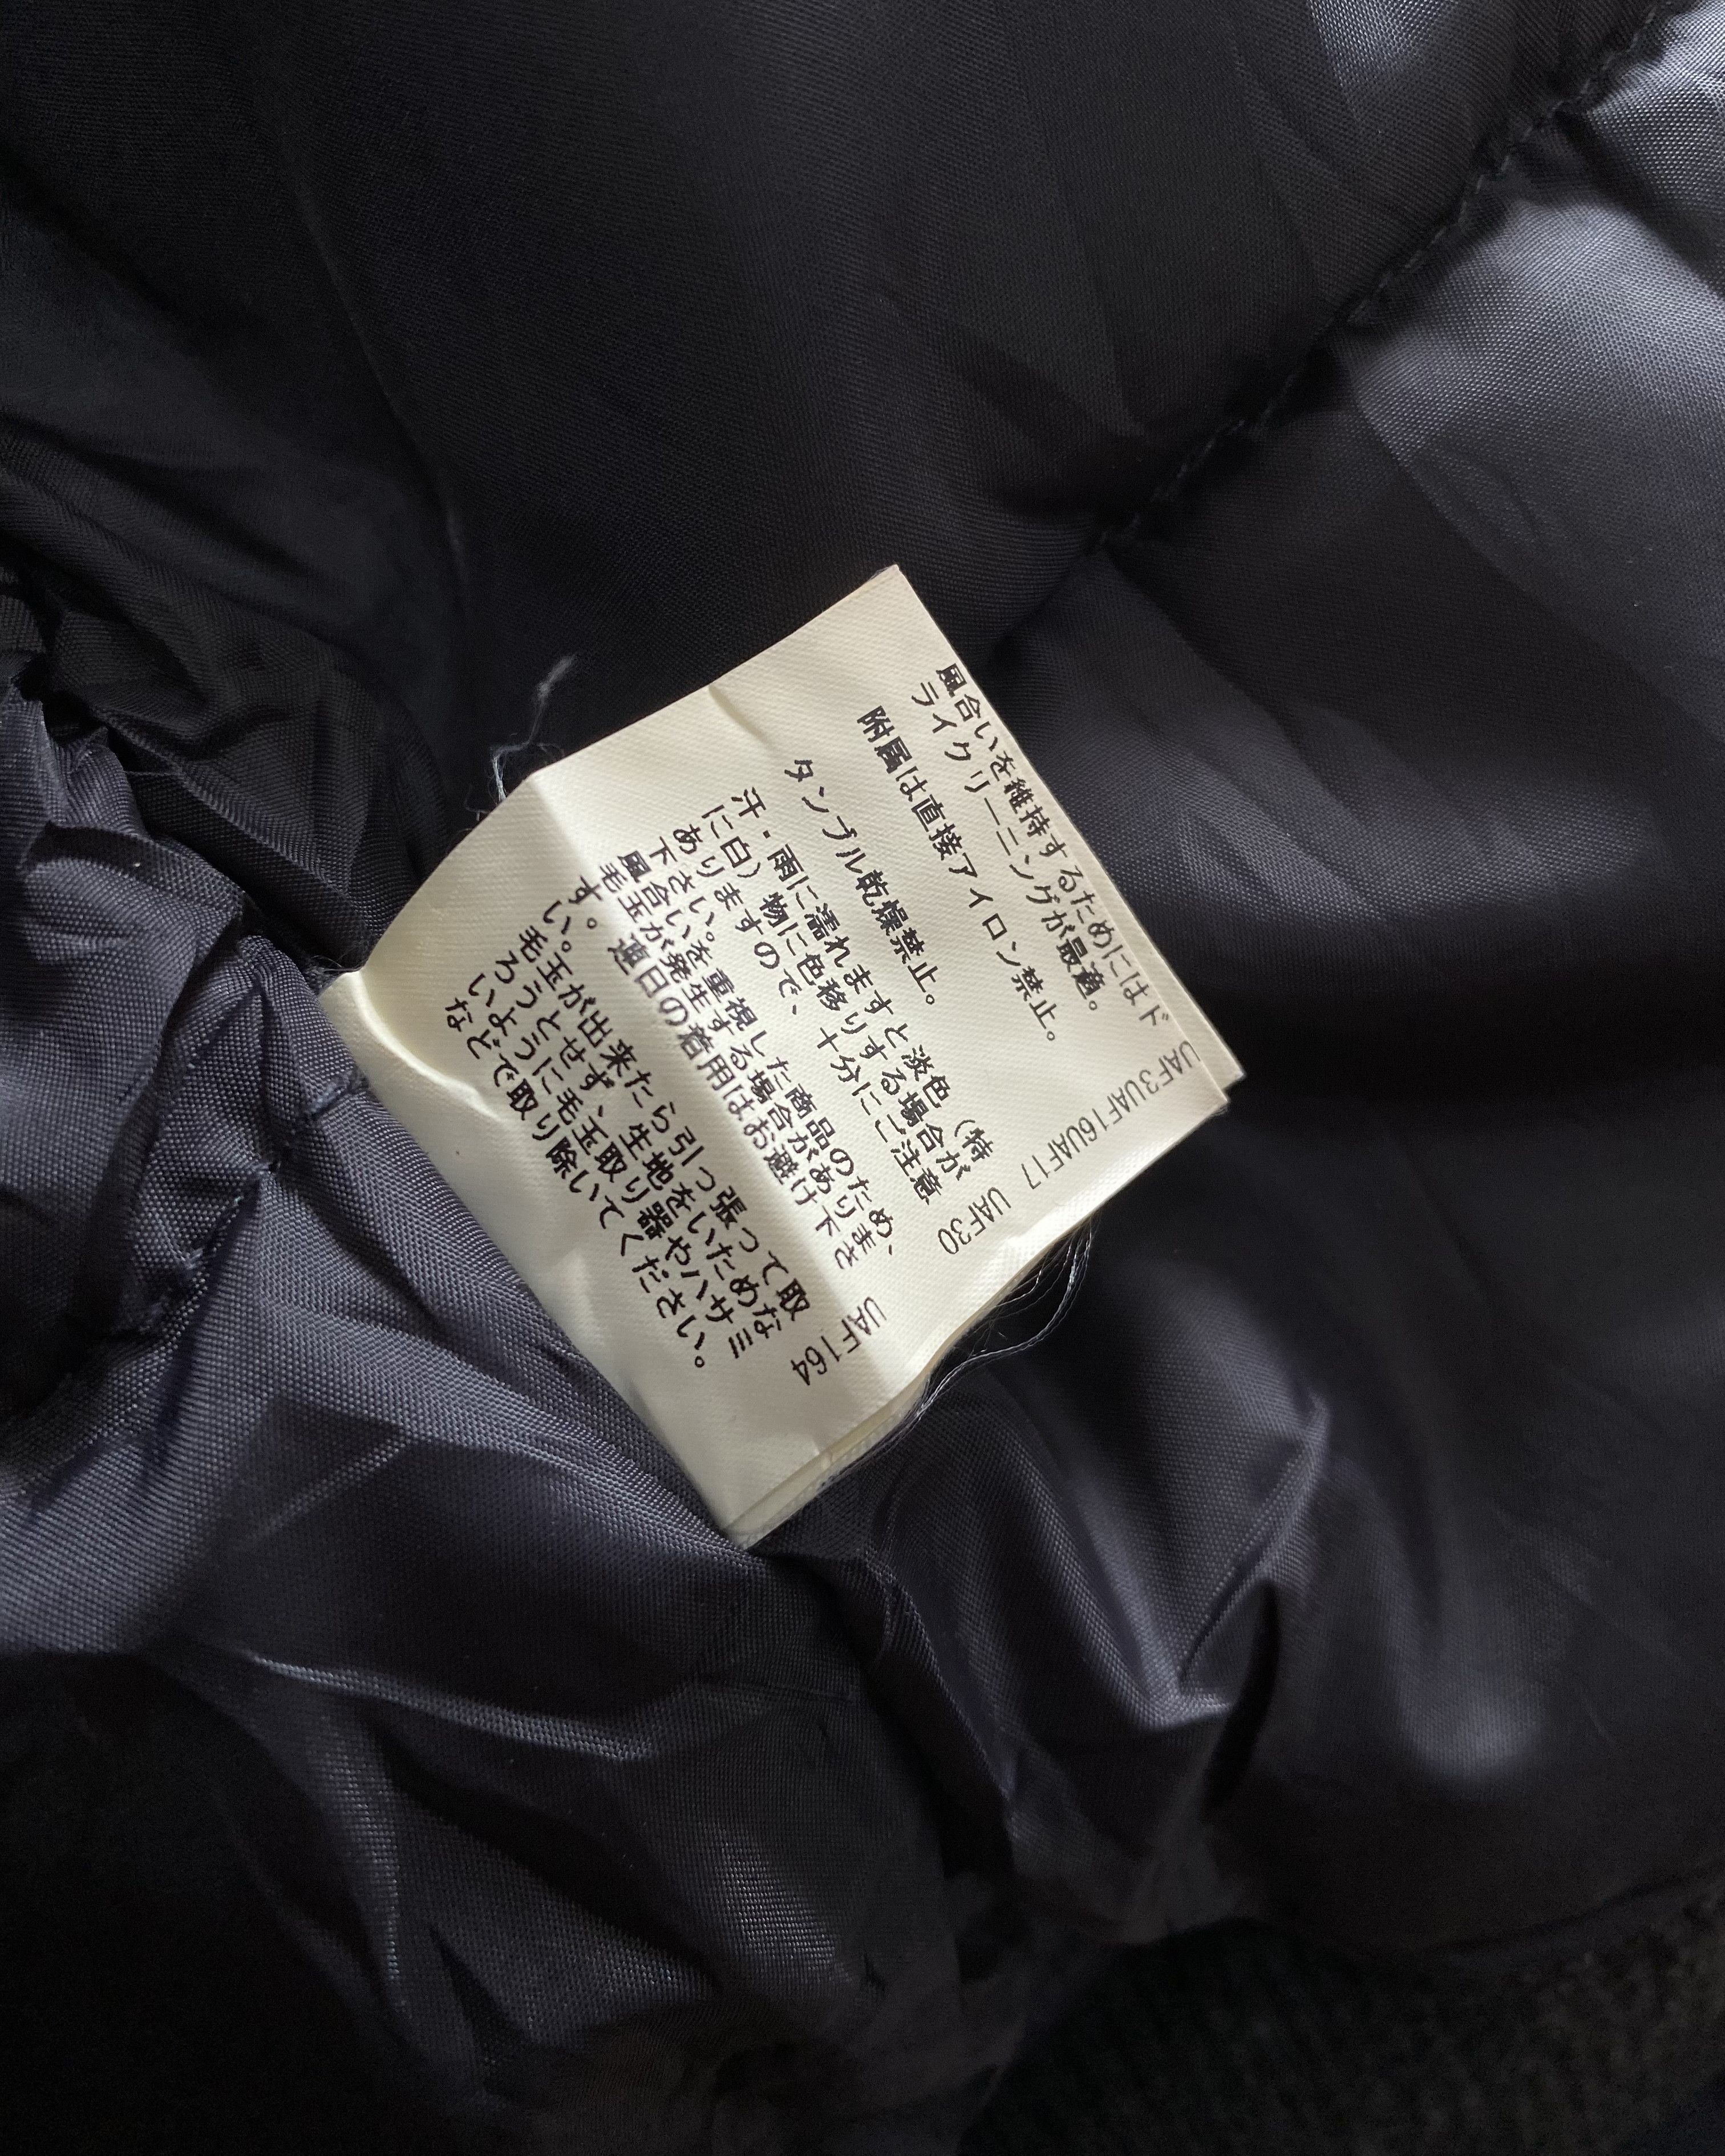 風合いを維持するためにはド
ライクリーニングが最適。
附属は直接アイロン禁止。
UAF3UAF16UAF17
タンブル乾燥禁止。
汗・雨に濡れますと淡色（特
に白）物に色移りする場合が
ありますので、十分にご注意
下さい。
UAF30
風合いを重視した商品のため、
毛玉が発生する場合がありま
す。連日の着用はお避け下さ
い。
毛玉が出来たら引っ張って取
ろうとせず、生地をいためな
いように毛玉取り器やハサミ
などで取り除いてください。
UAF164